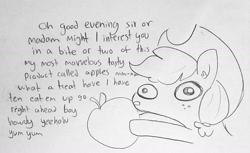 Oh good evening sir or
madam might I interest you
in a bite or two of this
my most marvelous tasty
product called apples mmmm
what a treat have I have
ten eat em up go
right ahead boy
howdy yeehaw
yum yum